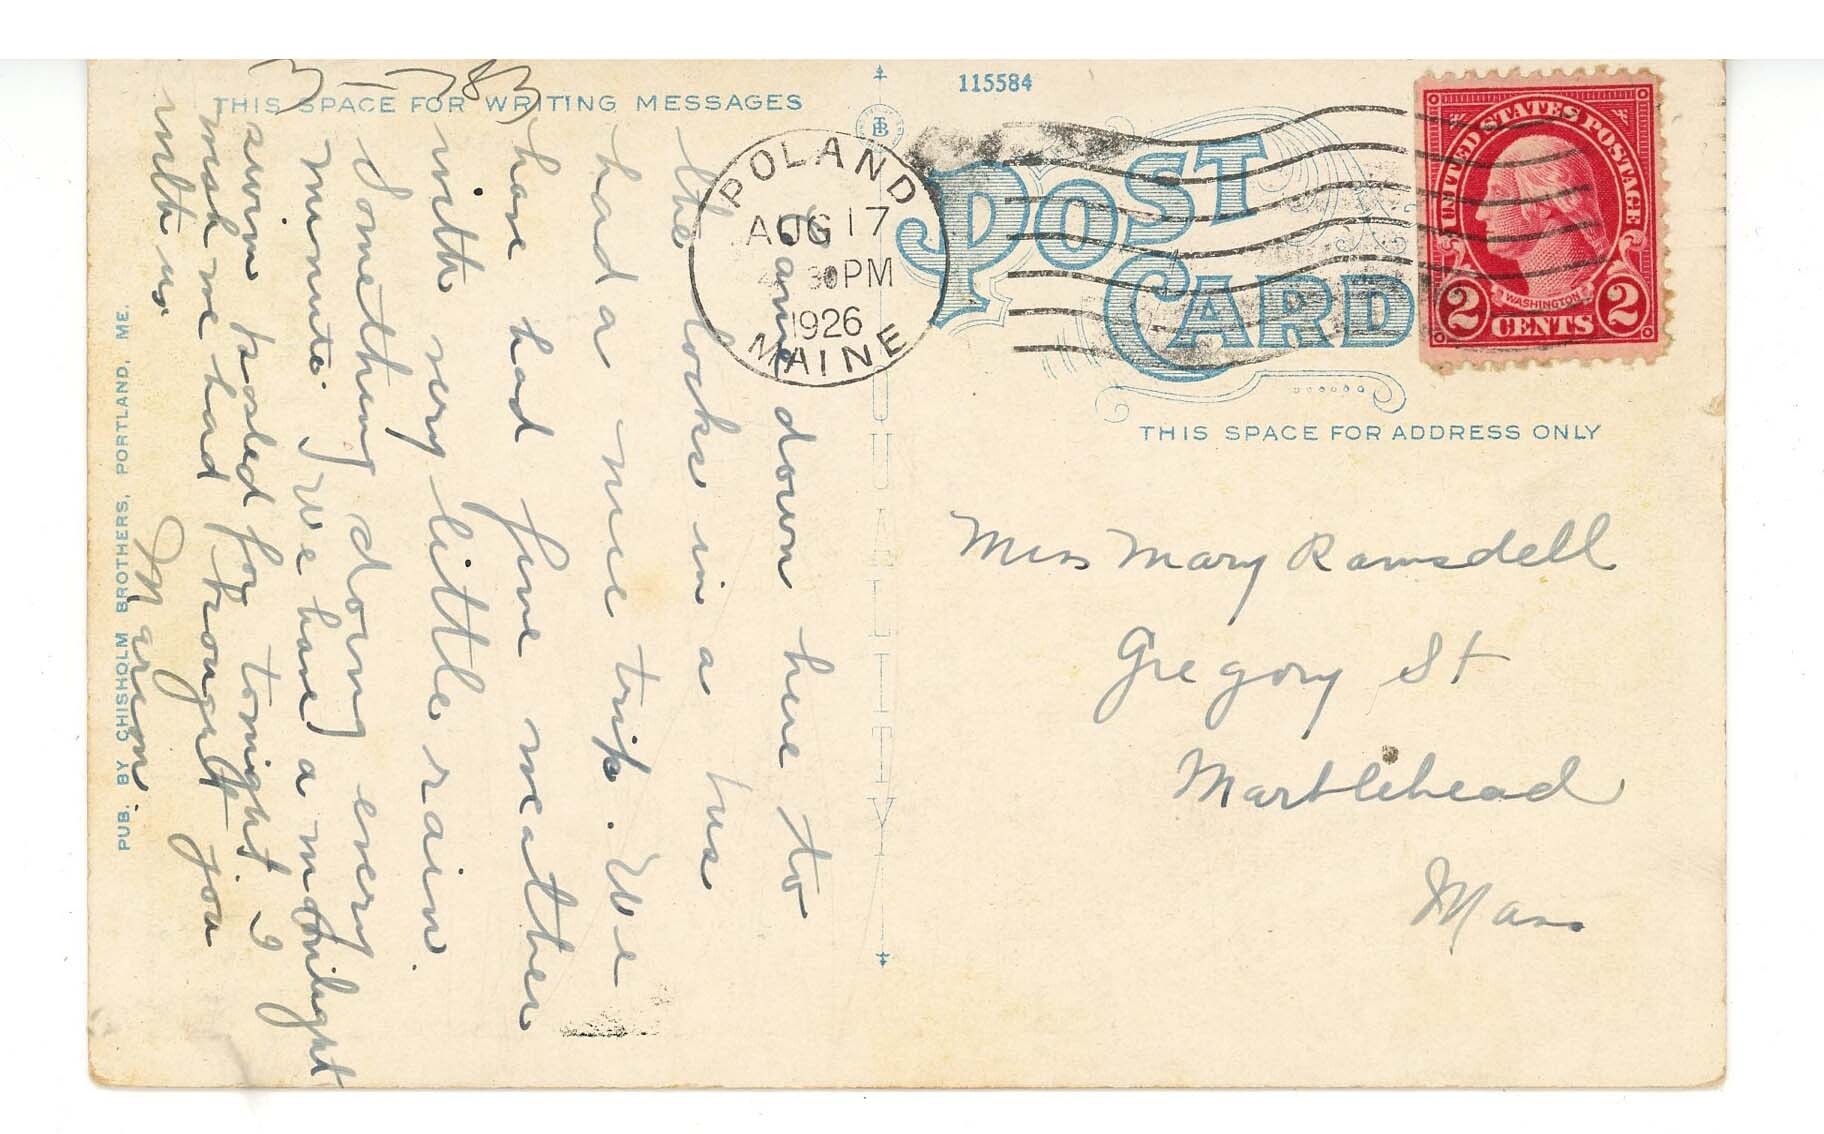 THIS SPACE FOR WRITING MESSAGES
115584
TB
POST CARD
POLAND
AUG 17
30 PM
1926
MAINE
UNITED STATES POSTAGE
WASHINGTON
2 CENTS 2
THIS SPACE FOR ADDRESS ONLY
QUALITY
PUB. BY CHISHOLM BROTHERS, PORTLAND, ME.
Came down here to
the docks in a bus
had a nice trip. We
have had fine weather
with very little rain.
Something doing every
minute. We have a moonlight
swim posted for tonight. I
wish we had brought you
with us
Marion
Miss Mary Ramsdell
Gregory St
Marblehead
Mass